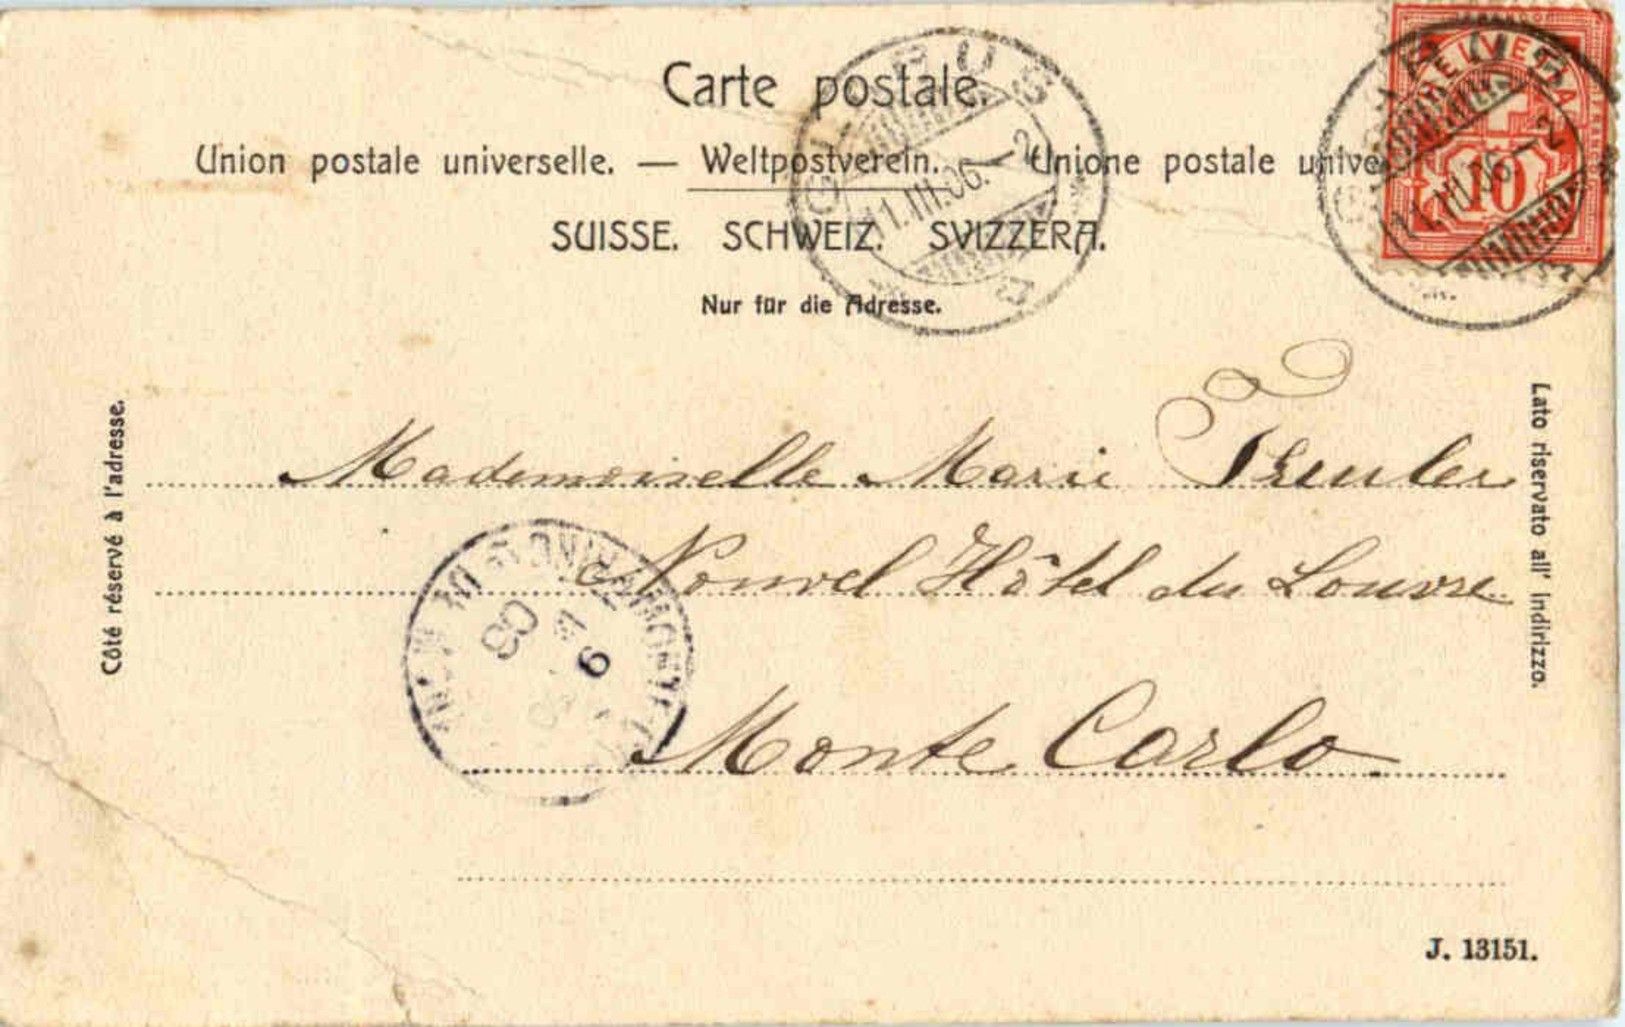 Carte postale.
Union postale universelle. — Weltpostverein. — Unione postale unive
SUISSE. SCHWEIZ. SVIZZERA.
Nur für die Adresse.
GLARUS
11.III.06.–2
HELVETIA
10
GLARUS
11.III.06.–2
Côté réservé à l'adresse.
Lato riservato all' indirizzo.
Mademoiselle Marie
Nouvel Hôtel du Louvre
Monte Carlo
J. 13151.